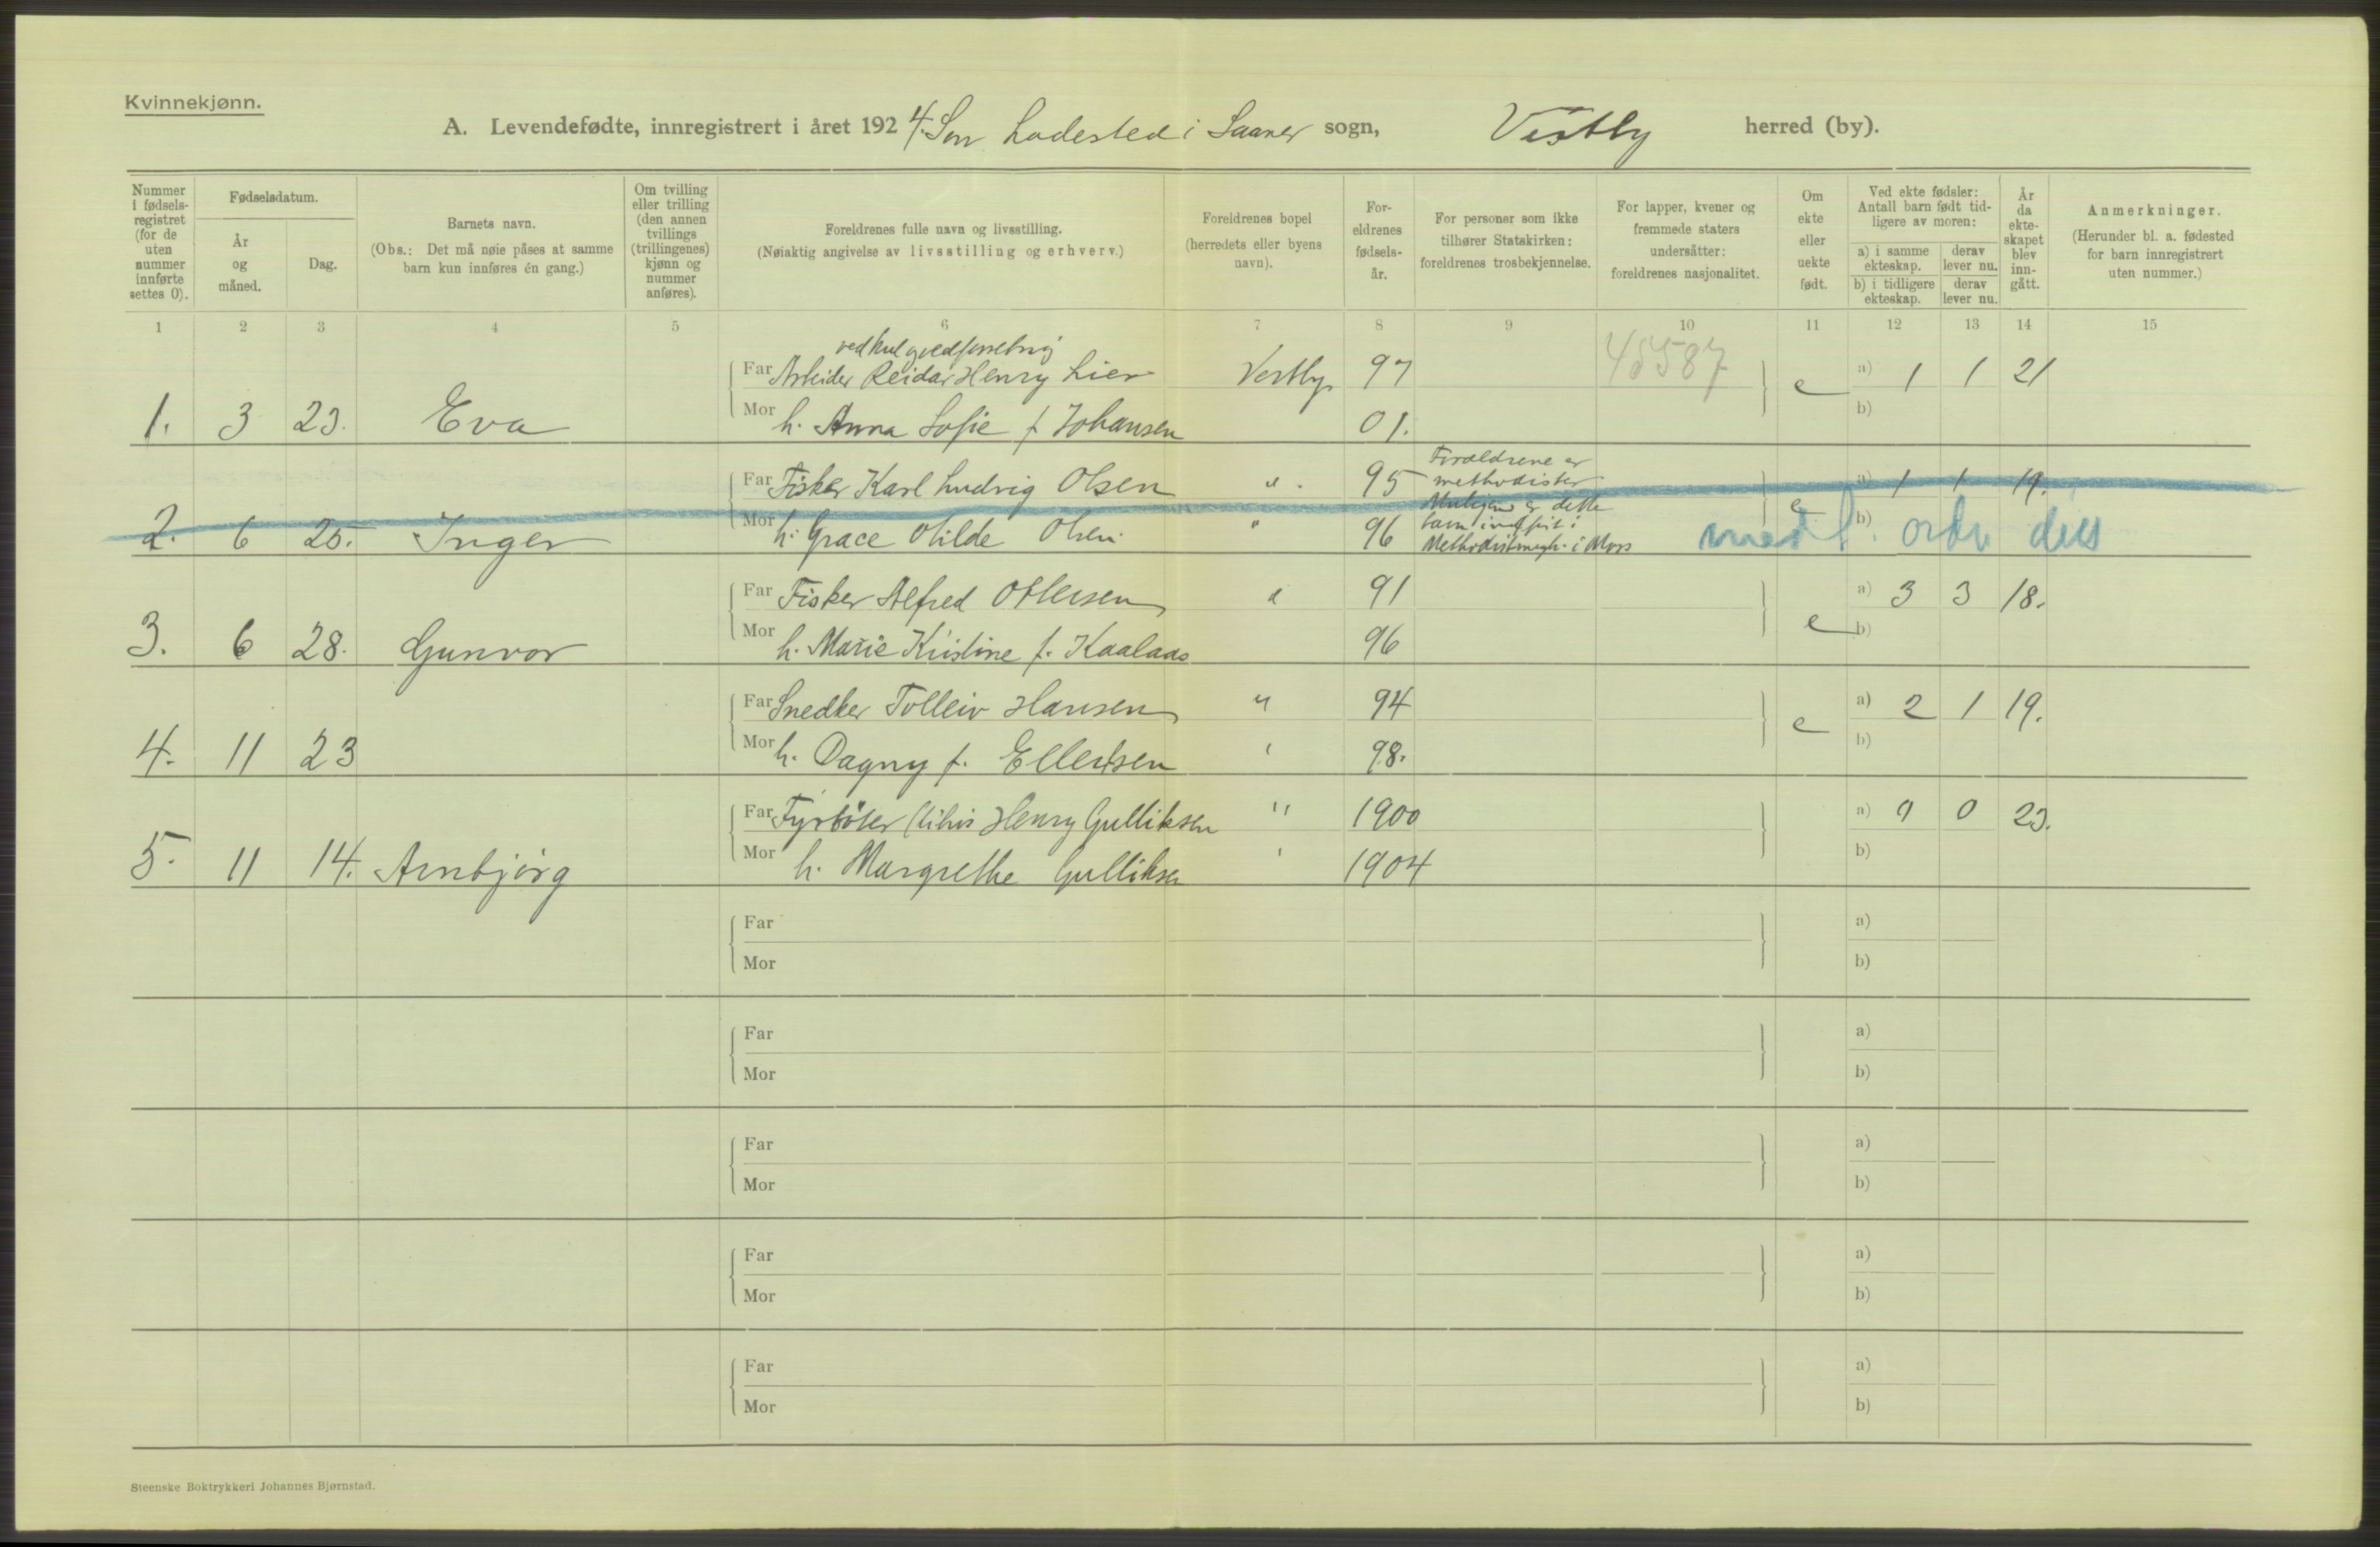 Kvinnekjønn.
A. Levendefødte, innregistrert i året 1924. Son Ladested i Saaner sogn, Vestby herred (by).
Nummer i fødsels-registret (for de uten nummer innførte settes 0).
Fødselsdatum.
År og måned.
Dag.
Barnets navn.
(Obs.: Det må nøie påses at samme barn kun innføres én gang.)
Om tvilling eller trilling (den annen tvillings (trillingenes) kjønn og nummer anføres).
Foreldrenes fulle navn og livsstilling.
(Nøiaktig angivelse av livsstilling og erhverv.)
Foreldrenes bopel (herredets eller byens navn).
For-eldrenes fødsels-år.
For personer som ikke tilhører Statskirken: foreldrenes trosbekjennelse.
For lapper, kvener og fremmede staters undersåtter: foreldrenes nasjonalitet.
Om ekte eller uekte født.
Ved ekte fødsler: Antall barn født tid-ligere av moren:
a) i samme ekteskap.
derav lever nu.
b) i tidligere ekteskap.
derav lever nu.
År da ekte-skapet blev inn-gått.
Anmerkninger.
(Herunder bl. a. fødested for barn innregistrert uten nummer.)
1 2 3 4 5 6 7 8 9 10 11 12 13 14 15
45587
Far Arbeider Reidar Henry Lier Vestby 97 e a) 1 1 21
1. 3 23. Eva Mor h. Anna Sofie f Johansen 01. b)
Foreldrene er
Far Fisker Karl Ludvig Olsen " 95 methodister e a) 1 1 19.
Muligens er dette
2. 6 25. Inger Mor h. Grace Otilde Olsen " 96 barn i b)
Methodistmgh. i Moss
Far Fisker Alfred Ottersen " 91 e a) 3 3 18.
3. 6 28. Gunvor Mor h. Marie Kristine f. Kaalaas 96 b)
Far Snedker Tolleiv Hansen " 94 e a) 2 1 19.
4. 11 23 Mor h. Dagny f. Ellertsen " 98. b)
Far Fyrbøter Henry Gulliksen " 1900 a) 0 0 23.
5. 11 14. Arnbjørg Mor h. Margrethe Gulliksen " 1904 b)
Far a)
Mor b)
Far a)
Mor b)
Far a)
Mor b)
Far a)
Mor b)
Far a)
Mor b)
Steenske Boktrykkeri Johannes Bjørnstad.